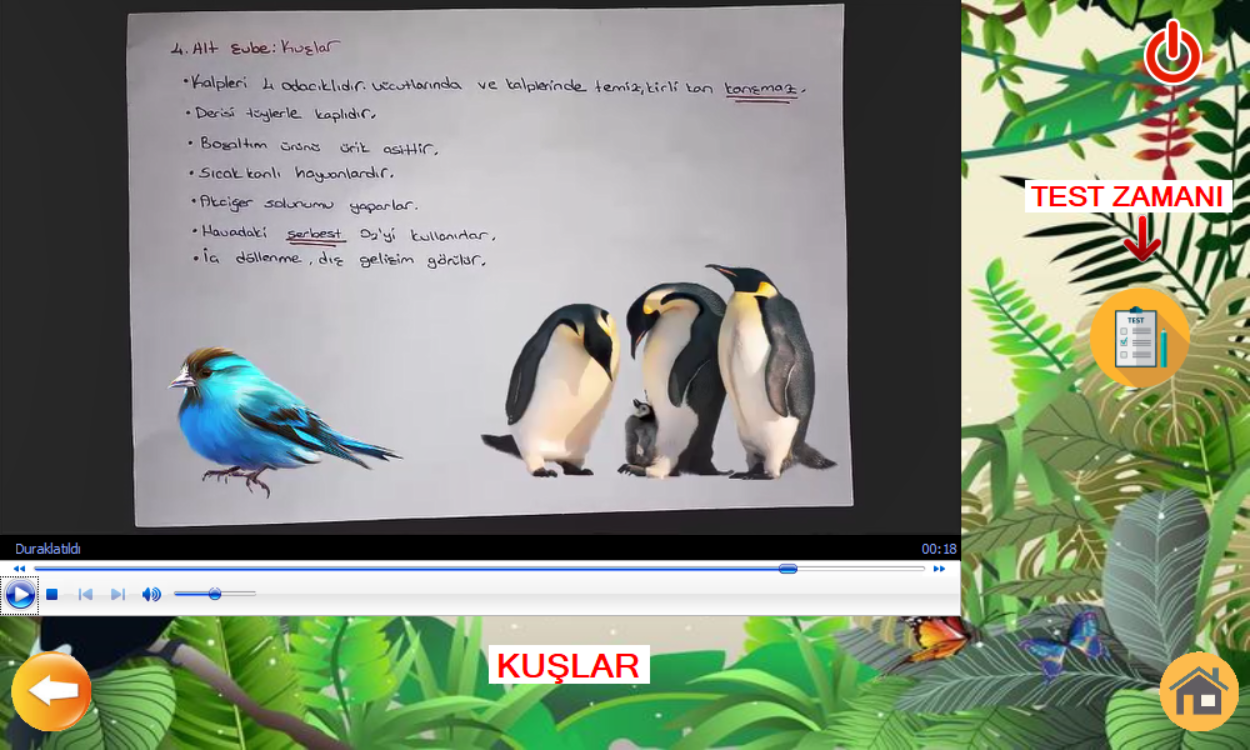 4. Alt Şube: Kuşlar
•Kalpleri 4 odacıklıdır. Vücutlarında ve kalplerinde temiz, kirli kan karışmaz.
•Derisi tüylerle kaplıdır.
•Boşaltım ürünü ürik asittir.
•Sıcakkanlı hayvanlardır.
•Akciğer solunumu yaparlar.
•Havadaki serbest O₂'yi kullanırlar.
•İç döllenme, dış gelişim görülür.
TEST ZAMANI
TEST
Duraklatıldı
00:18
KUŞLAR